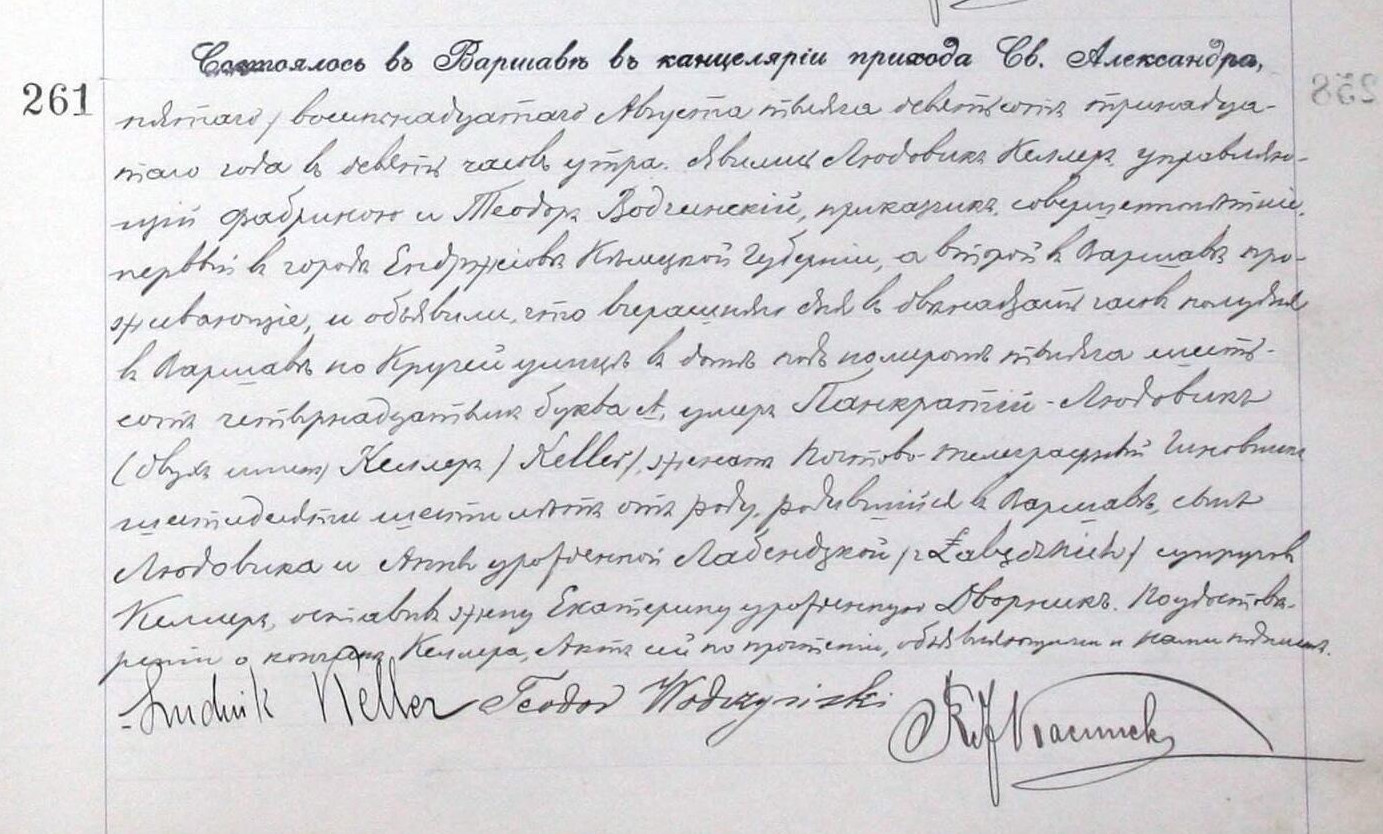 Состоялось въ Варшавѣ въ канцеляріи прихода Св. Александра,
261
пятаго / восемнадцатаго Августа тысяча девятьсотъ тринадца-
таго года въ девять часовъ утра. Явились Людовикъ Келлеръ управляю-
щій фабрикою и Теодоръ Водчинскій, приказчикъ, совершеннолѣтніе,
первый въ городѣ Енджіовѣ Кѣлецкой Губерніи, а второй въ Варшавѣ про-
живающіе, и объявили, что вчерашняго дня въ двѣнадцать часовъ полудня
въ Варшавѣ по Кручей улицѣ въ домѣ подъ номеромъ тысяча шесть-
сотъ четырнадцатымъ буква А, умеръ Панкратій-Людовикъ
(двухъ именъ) Келлеръ / Keller /, женатъ Почтово-телеграфный Чиновникъ
шестидесяти шести лѣтъ отъ роду, родившійся въ Варшавѣ, сынъ
Людовика и Анны урожденной Лабендзкой / z Łabędzkich / супруговъ
Келлеръ, оставивъ жену Екатерину урожденную Дворникъ. По удостовѣ-
реніи о кончинѣ Келлера, Актъ сей по прочтеніи, объявляющими и нами подписанъ.
Ludwik Keller Teodor Wodczyński
258